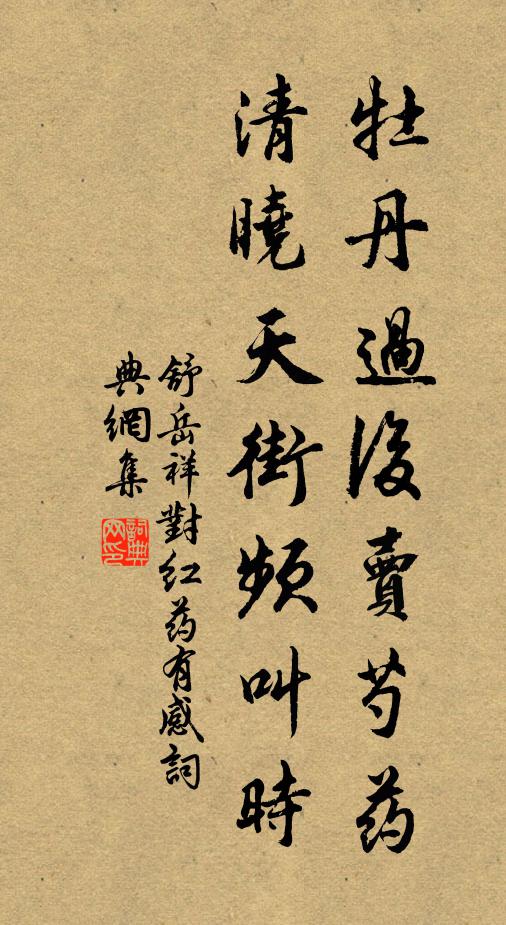 牡丹過後賣芍药
清曉天街頻叫時
舒岳祥對红药有感詞
典網集
詞典
网印